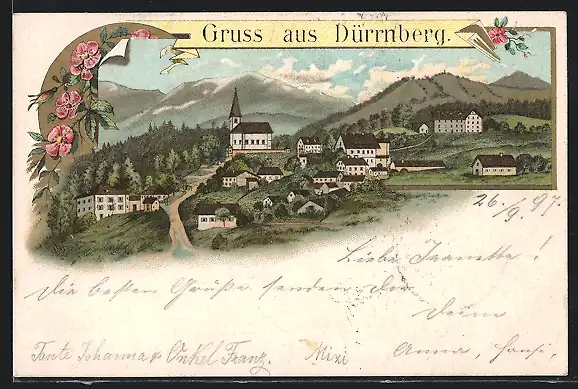 Gruss aus Dürrnberg.
26/9. 97.
Liebe Jeanette!
Die besten Grüße senden Dir
Deine
Tante Johanna & Onkel Franz. Mizi Anna, Hansi,